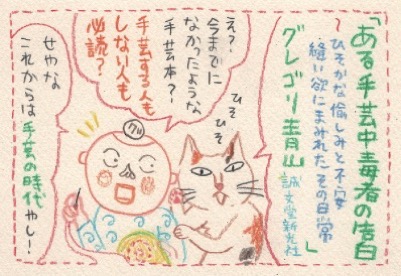 「ある手芸中毒者の告白
ひそかな愉しみと不安
縫い欲にまみれたその日常」
グレゴリ青山
誠文堂新光社
ひそひそ
え?
今までに
なかったような
手芸本?
手芸する人も
しない人も
必読?
グリ
せやな
これからは手芸の時代やし!